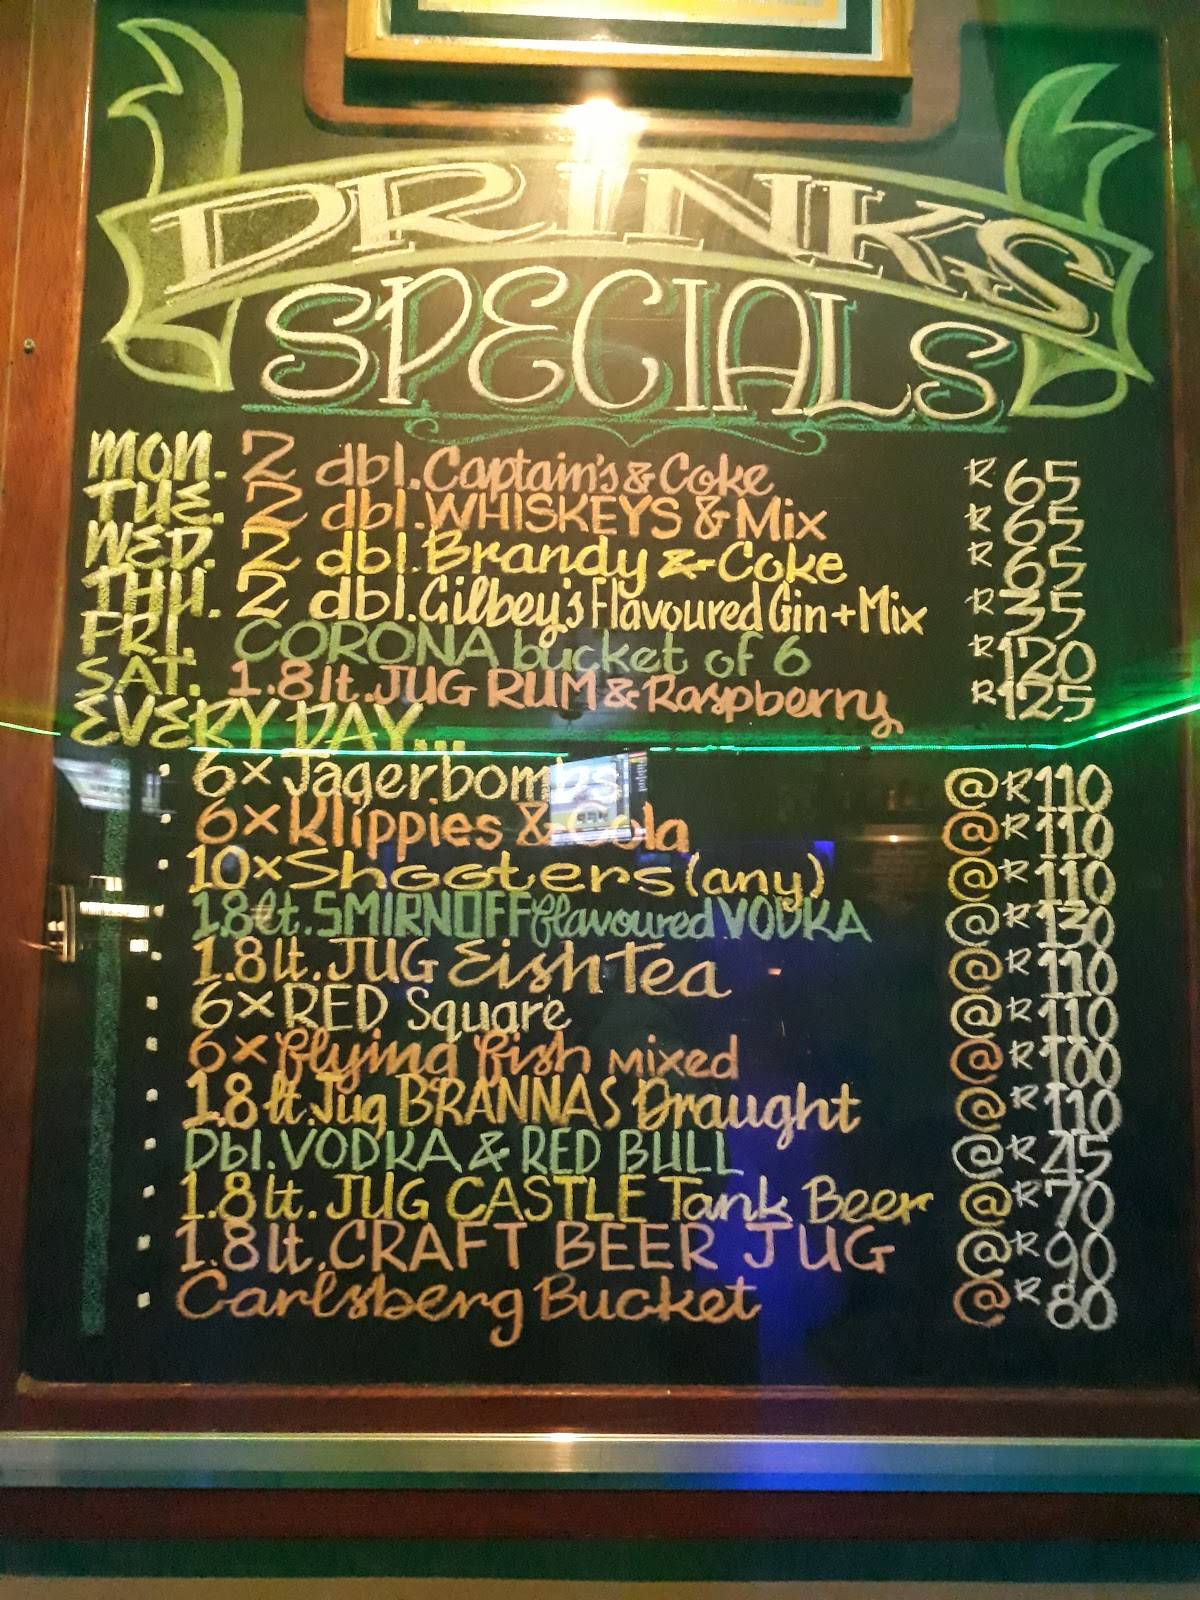 DRINKS
SPECIALS
MON. 2 dbl. Captain's & Coke R 65
TUE. 2 dbl. WHISKEYS & Mix R 65
WED. 2 dbl. Brandy & Coke R 65
THU. 2 dbl. Gilbey's Flavoured Gin + Mix R 35
FRI. CORONA bucket of 6 R 120
SAT. 1.8 lt. JUG RUM & Raspberry R 125
EVERY DAY...
· 6x Jagerbombs @ R 110
· 6x Klippies & Cola @ R 110
· 10x Shooters (any) @ R 110
· 1.8 lt. SMIRNOFF flavoured VODKA @ R 130
· 1.8 lt. JUG Eish Tea @ R 110
· 6x RED Square @ R 110
· 6x flying fish mixed @ R 100
· 1.8 lt. Jug BRANNAS Draught @ R 110
· Dbl. VODKA & RED BULL @ R 45
· 1.8 lt. JUG CASTLE Tank Beer @ R 70
· 1.8 lt. CRAFT BEER JUG @ R 90
· Carlsberg Bucket @ R 80